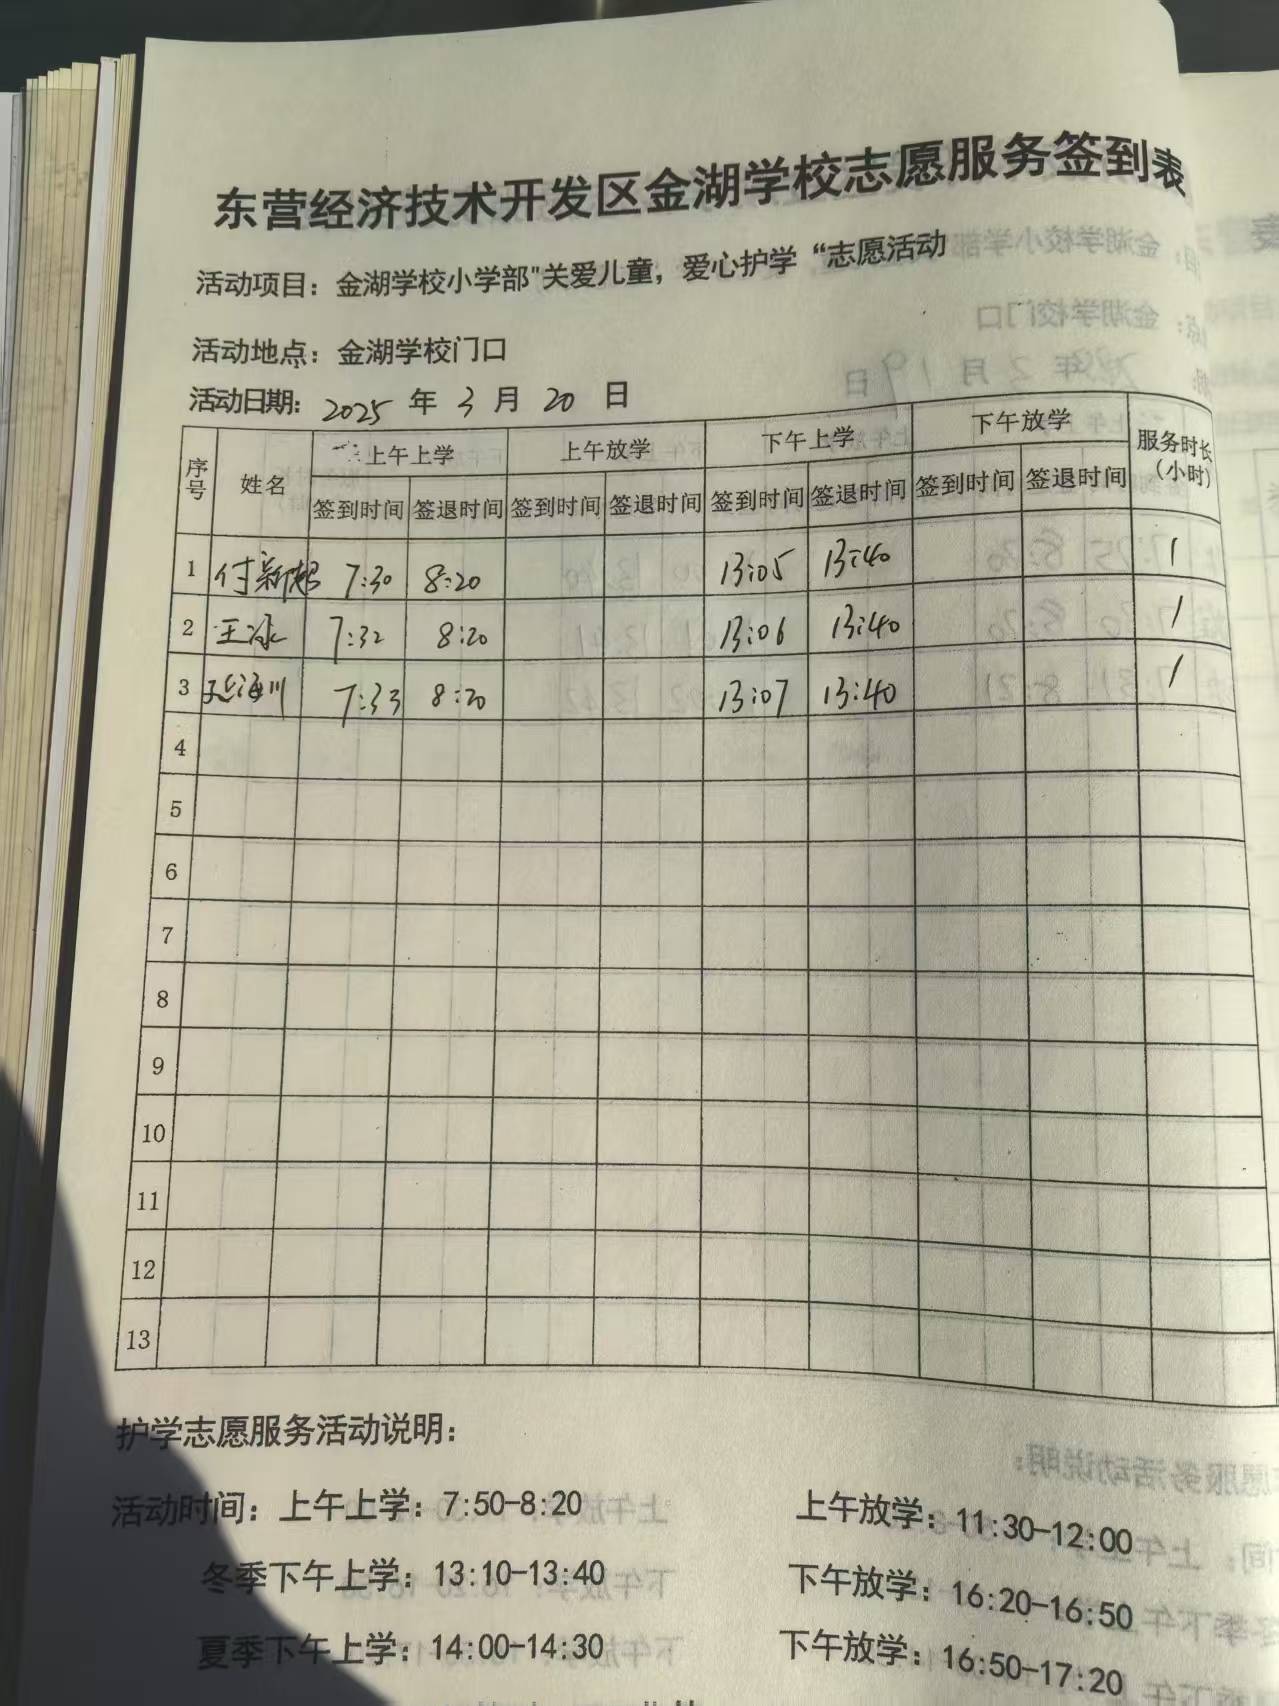 东营经济技术开发区金湖学校志愿服务签到表
活动项目：金湖学校小学部"关爱儿童，爱心护学“志愿活动
活动地点：金湖学校门口
活动日期：2025 年 3 月 20 日
序号 姓名 上午上学 上午放学 下午上学 下午放学 服务时长（小时）
签到时间 签退时间 签到时间 签退时间 签到时间 签退时间 签到时间 签退时间
1 付新超 7:30 8:20 13:05 13:40 1
2 王冰 7:32 8:20 13:06 13:40 1
3 延海川 7:33 8:20 13:07 13:40 1
4
5
6
7
8
9
10
11
12
13
护学志愿服务活动说明：
活动时间：上午上学：7:50-8:20 上午放学：11:30-12:00
冬季下午上学：13:10-13:40 下午放学：16:20-16:50
夏季下午上学：14:00-14:30 下午放学：16:50-17:20